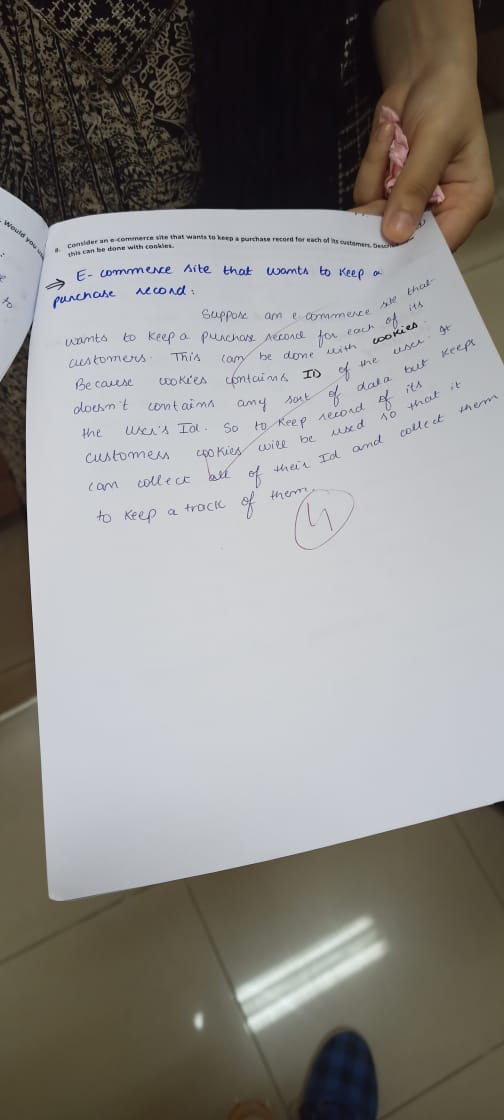 Would you
8. Consider an e-commerce site that wants to keep a purchase record for each of its customers. Describe
this can be done with cookies.
→ E-commerce site that wants to keep a
purchase record:
Suppose an e commerce site that
wants to keep a purchase record for each of its
customers. This can be done with cookies.
Because cookies contains ID of the user. It
doesn't contains any sort of data but keeps
the user's Id. So to keep record of its
customers cookies will be used so that it
can collect all of their Id and collect them
to keep a track of them.
4